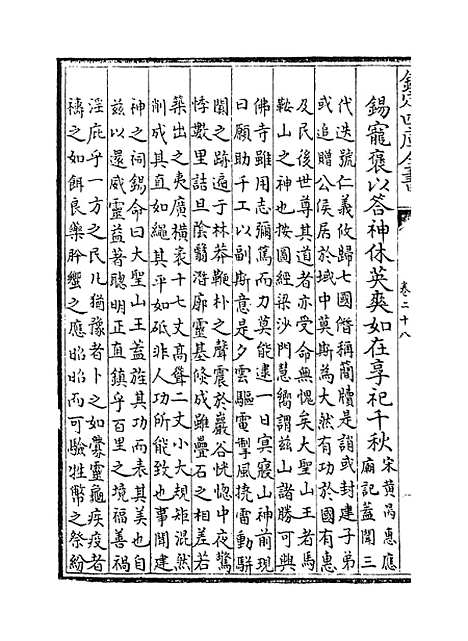 欽定四庫全書
卷二十八
錫寵褒以荅神休英爽如在享祀千秋
宋黄昺惠應
廟記蓋聞三
代迭號仁義攸歸七國僭稱簡牘是誚或封建子弟
或追贈公侯居於域中莫斯為大然有功於國有惠
及民後世尊其道者亦受命無愧矣大聖山王者馬
鞍山之神也按圖經梁沙門慧嚮謂兹山諸勝可興
佛寺雖用志彌篤而力莫能逮一日冥寢山神前現
曰願助千工以副斯意是夕雲驅電掣風撓雷動駢
闐之跡遍于林莽鞭朴之聲震於巖谷恍惚中夜驚
悸數里詰旦陰翳澄廓靈基倏成雖疊石之相差若
築出之夷廣橫袤十七丈高聳二丈小大規矩混然
削成其直如繩其平如砥非人功所能致也事聞建
神之祠錫命曰大聖山王蓋旌其功而表其美也自
兹以還威靈益著聰明正直鎮乎百里之境福善禍
淫庇乎一方之民凡猶豫者卜之如爨靈龜疾疫者
禱之如餌良藥肸蠁之應昭昭而可驗牲幣之祭紛